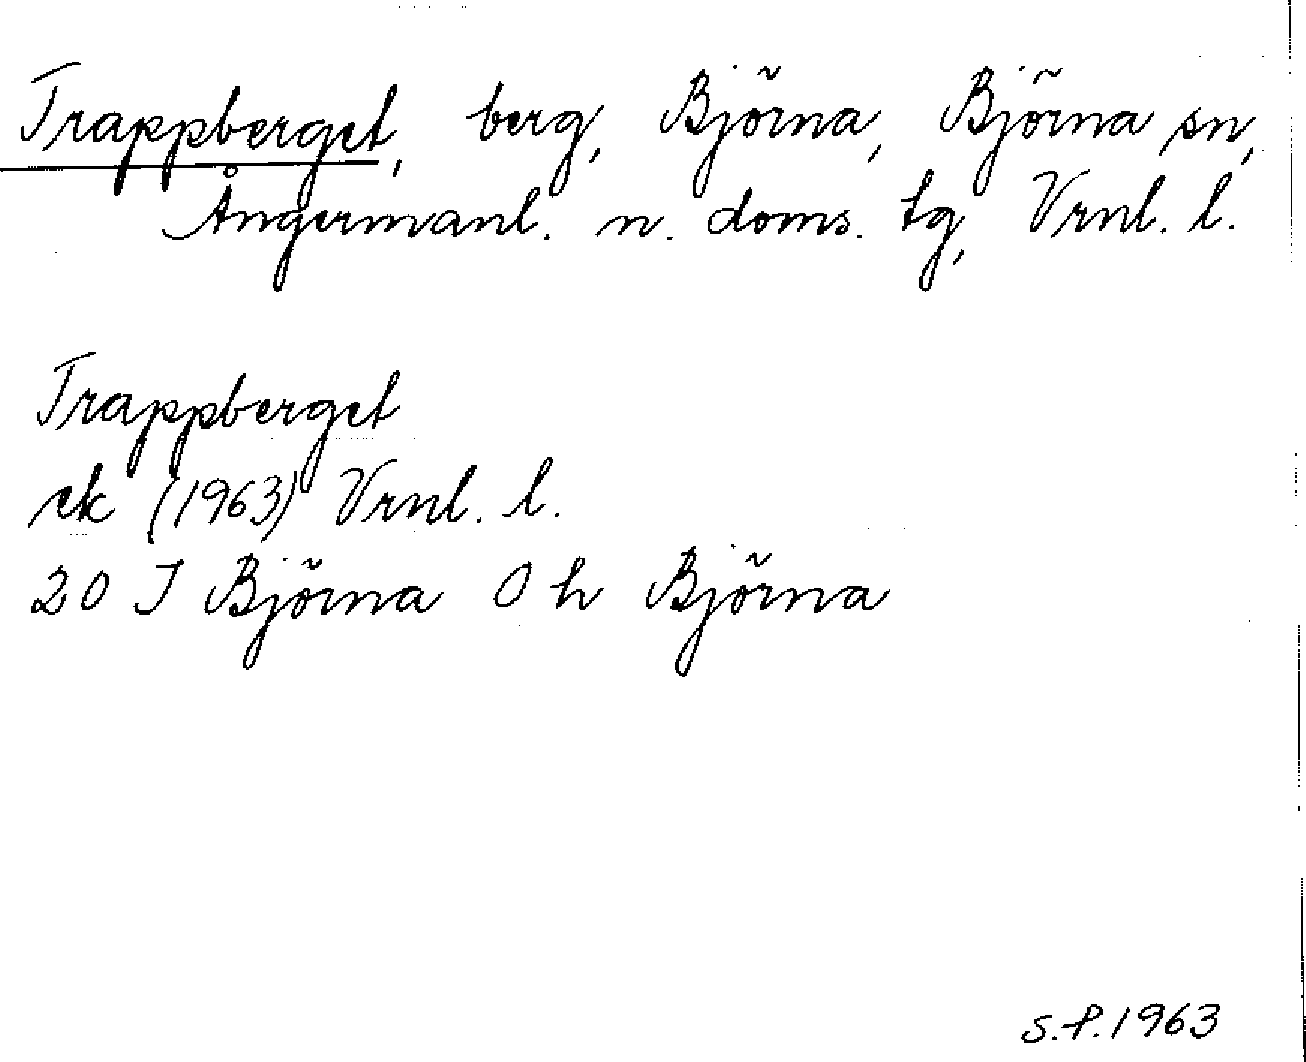 Trappberget, berg, Björna, Björna sn,
Ångermanl. n. doms. tg, Vrnl. l.
Trappberget
ek (1963) Vrnl. l.
20 I Björna 0 h Björna
S.P. 1963